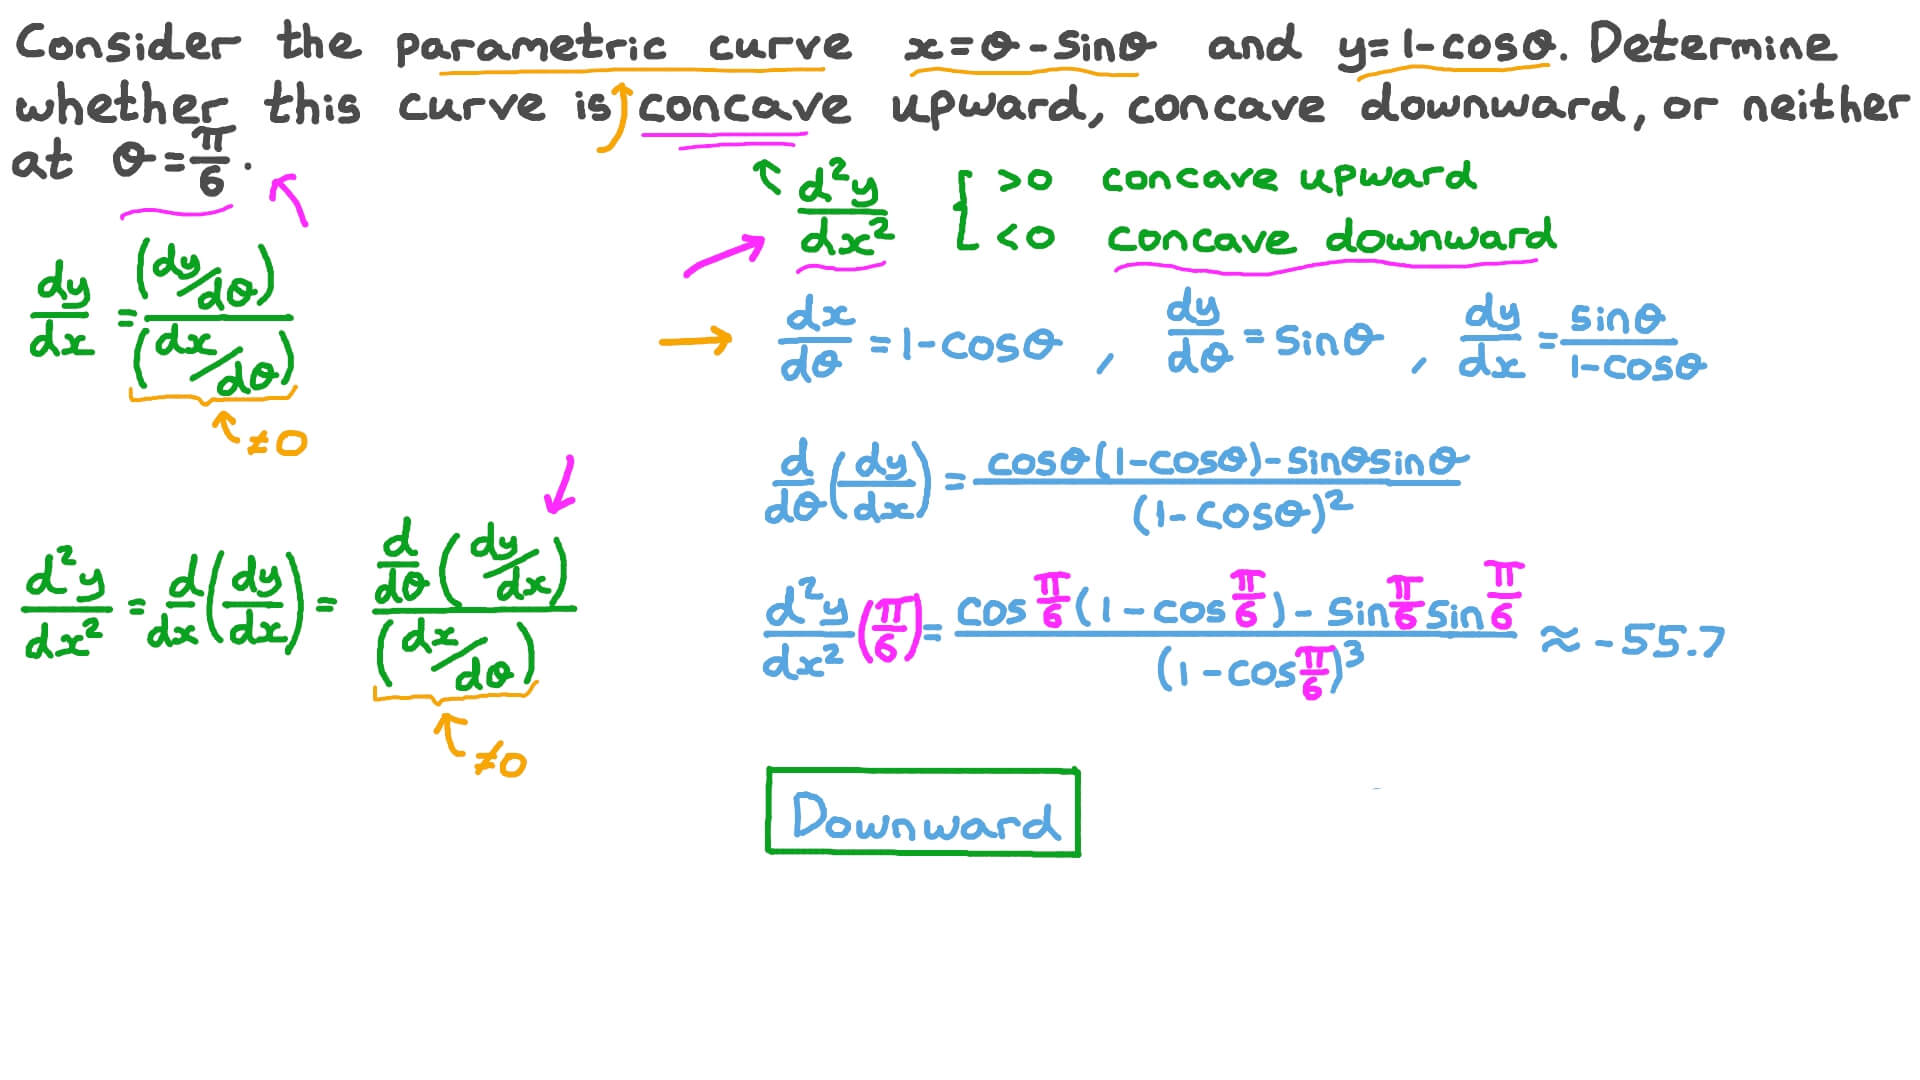 Consider the parametric curve x=θ-sinθ and y=1-cosθ. Determine
whether this curve is concave upward, concave downward, or neither
at θ=π/6.
d²y/dx² { >0 concave upward
<0 concave downward
dy/dx = (dy/dθ)/(dx/dθ)
≠0
dx/dθ = 1-cosθ , dy/dθ = sinθ , dy/dx = sinθ/(1-cosθ)
d/dθ(dy/dx) = (cosθ(1-cosθ)-sinθsinθ)/(1-cosθ)²
d²y/dx² = d/dx(dy/dx) = (d/dθ(dy/dx))/(dx/dθ)
≠0
d²y/dx²(π/6) = (cos π/6(1-cos π/6)-sin π/6 sin π/6)/(1-cos π/6)³ ≈ -55.7
Downward